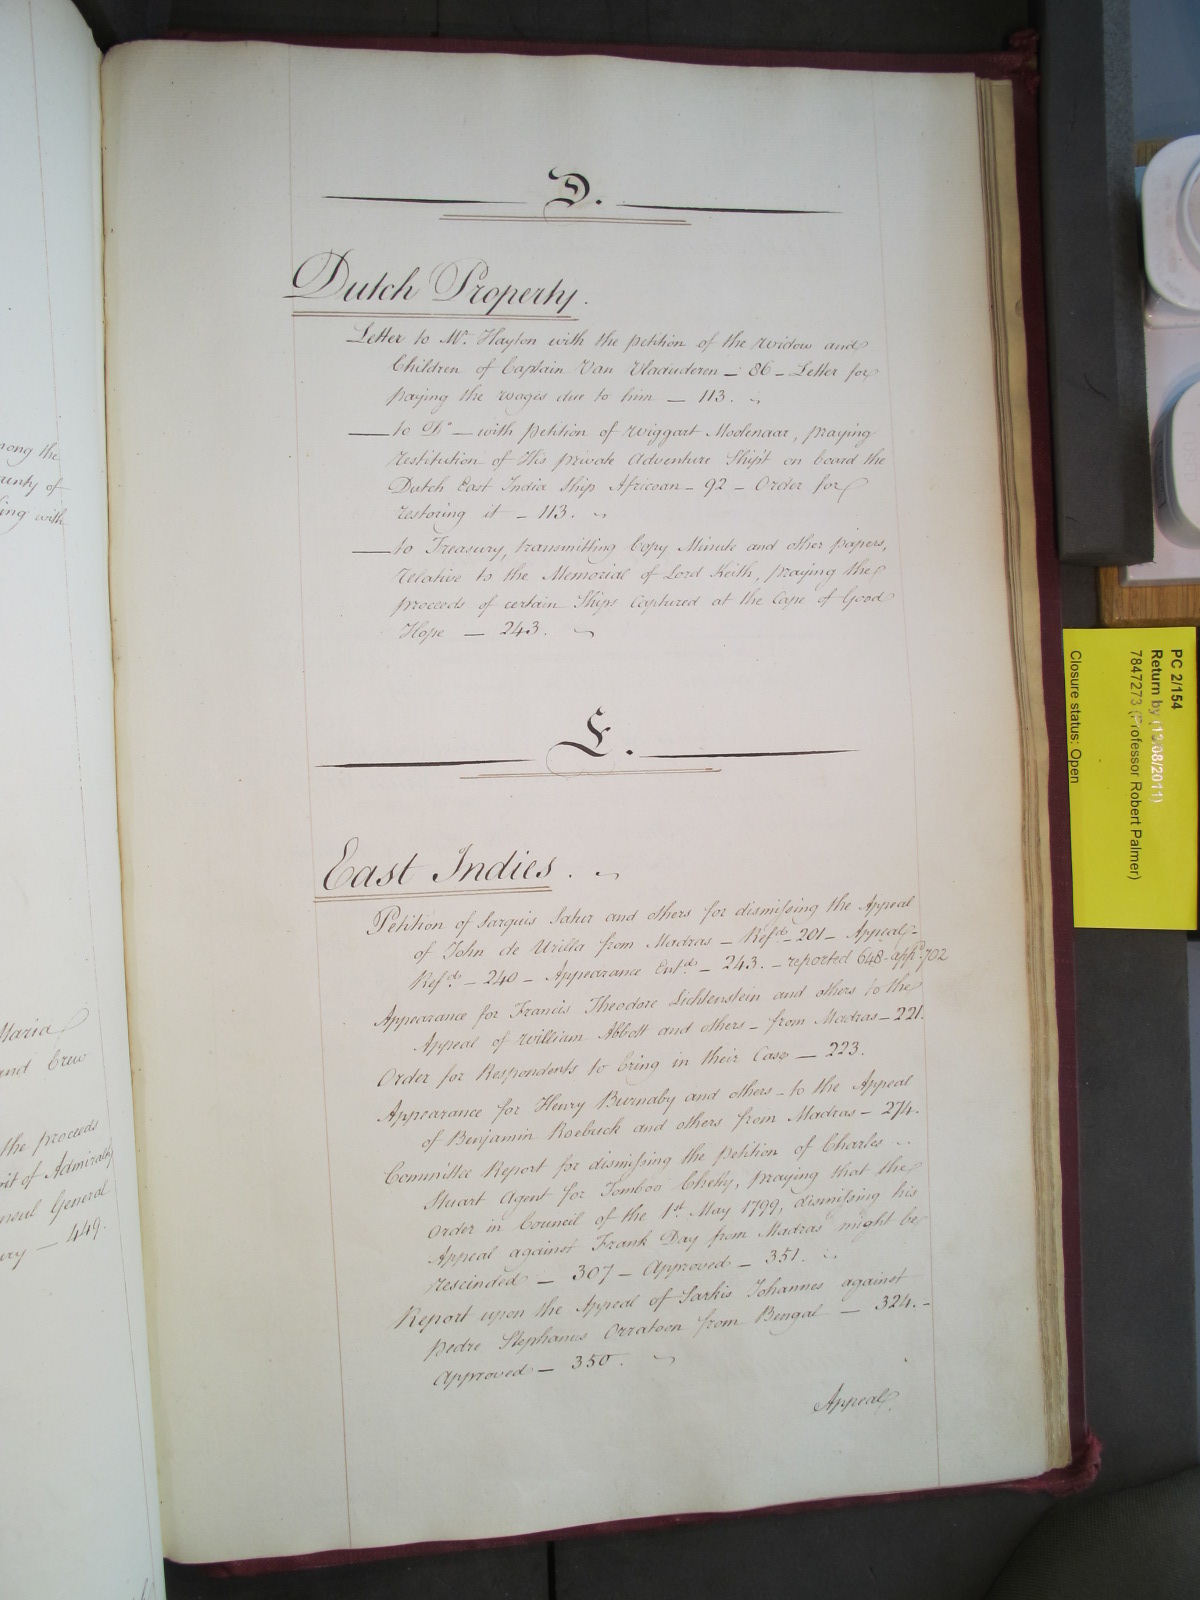 mong the
ounty of
ing with
Maria
and Crew
the proceeds
rit of Admiralty
nsul General
ury — 449.
D.
Dutch Property.
Letter to Mr. Hayton with the petition of the widow and
Children of Captain Van Vladuderen — 86 — Letter for
paying the wages due to him — 113.
— to Do — with petition of Wiggart Moolenaar, praying
restitution of His private Adventure Shipt on board the
Dutch East India Ship Africaan — 92 — Order for
restoring it — 113.
— to Treasury, transmitting Copy Minute and other papers,
relative to the Memorial of Lord Keith, praying the
proceeds of certain Ships Captured at the Cape of Good
Hope — 243.
E.
East Indies.
Petition of Sarquis Satur and others for dismissing the Appeal
of John de Urilla from Madras — Refd — 201 — Appeal —
Refd. — 240 — Appearance Entd — 243. — reported 648 appd 702
Appearance for Francis Theodore Lichtenstein and others to the
Appeal of William Abbott and others — from Madras — 221.
Order for Respondents to bring in their Case — 223.
Appearance for Henry Burnaby and others — to the Appeal
of Benjamin Roebuck and others from Madras — 274.
Committee Report for dismissing the petition of Charles
Stuart Agent for Tomboo Chetty, praying that the
Order in Council of the 1st May 1799, dismissing his
Appeal against Frank Day from Madras might be
rescinded — 307 — Approved — 351.
Report upon the Appeal of Sarkis Johannes against
Pedre Stephanus Orratoon from Bengal — 324. —
Approved — 350.
Appeal
PC 2/154
Return by (12/08/2011)
7847273 (Professor Robert Palmer)
Closure status: Open